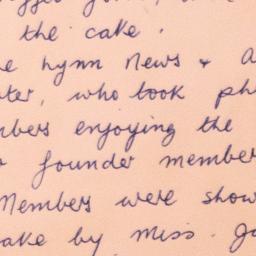 the cake.
e Lynn News & A
ter, who took ph
mbers enjoying the
founder member
Members were show
ake by Miss. Ja